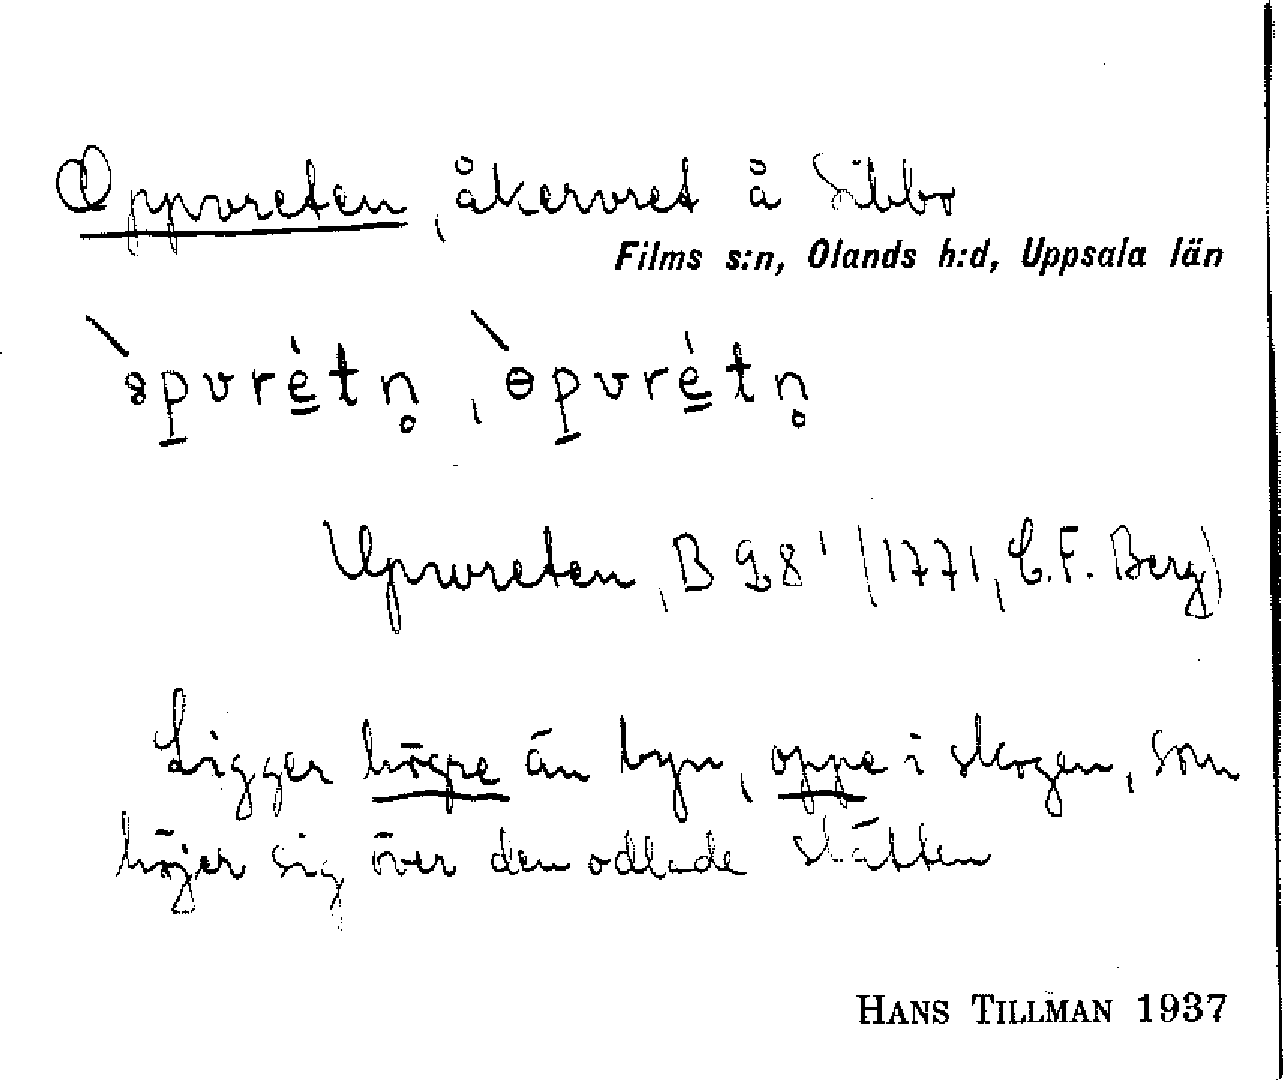 Oppvreten, åkervret å Sibbo
Films s:n, Olands h:d, Uppsala län
Upvreten, B 98' (1771, C.F. Berg)
Ligger högre än byn, oppe i skogen, som
höjer sig över den odlade slätten
HANS TILLMAN 1937